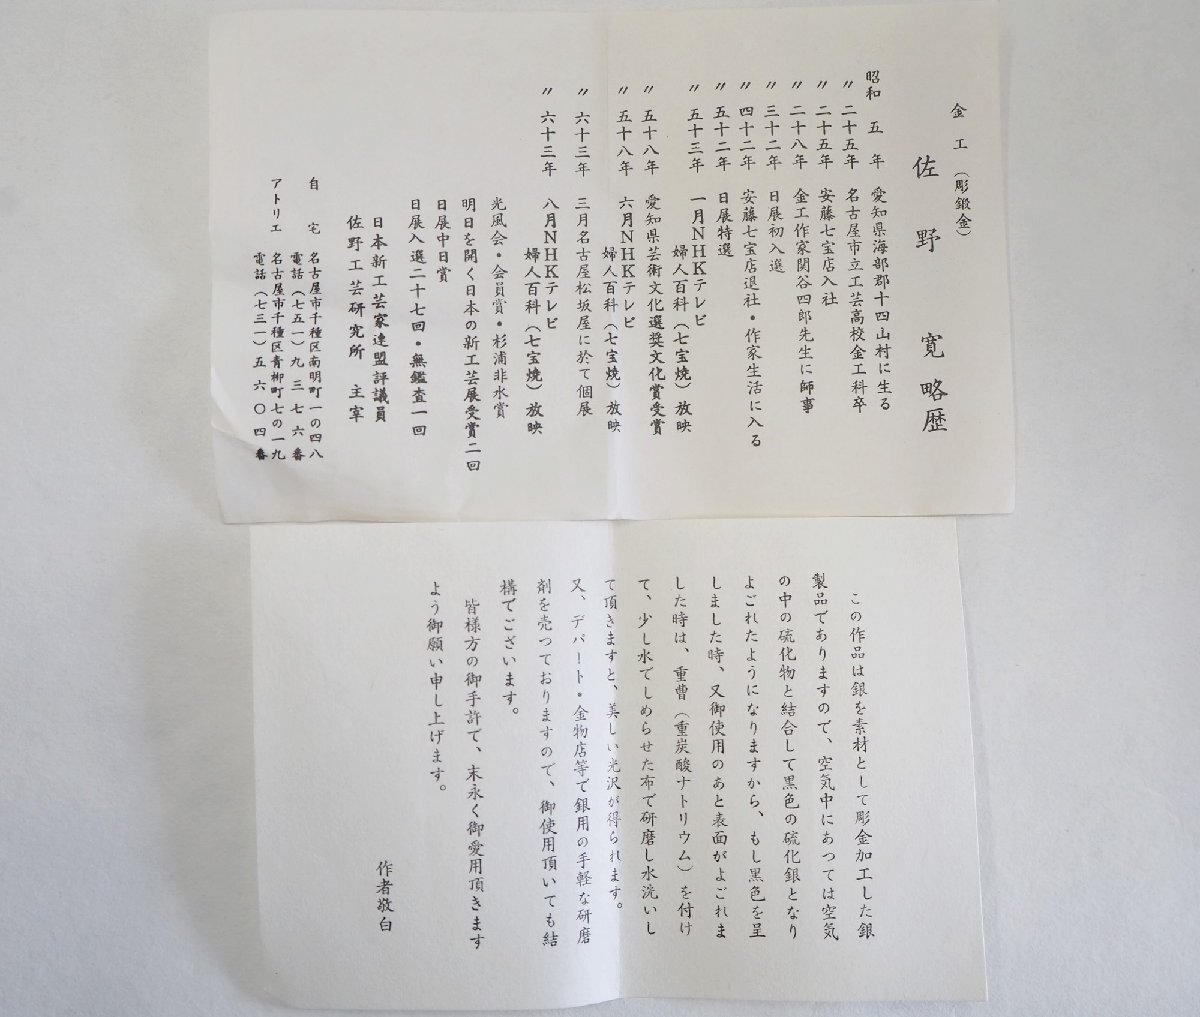 金工（彫鍛金）
佐野 寛 略歴
昭和 五 年 愛知県海部郡十四山村に生る
〃 二十五年 名古屋市立工芸高校金工科卒
〃 二十五年 安藤七宝店入社
〃 二十八年 金工作家関谷四郎先生に師事
〃 三十二年 日展初入選
〃 四十二年 安藤七宝店退社・作家生活に入る
〃 五十二年 日展特選
〃 五十三年 一月NHKテレビ
婦人百科（七宝焼）放映
〃 五十八年 愛知県芸術文化選奨文化賞受賞
〃 五十八年 六月NHKテレビ
婦人百科（七宝焼）放映
〃 六十三年 三月名古屋松坂屋に於て個展
〃 六十三年 八月NHKテレビ
婦人百科（七宝焼）放映
光風会・会員賞・杉浦非水賞
明日を開く日本の新工芸展受賞二回
日展中日賞
日展入選二十七回・無鑑査一回
日本新工芸家連盟評議員
佐野工芸研究所 主宰
自 宅 名古屋市千種区南明町一の四八
電話（七五一）九三七六番
アトリエ 名古屋市千種区青柳町七の一九
電話（七三一）五六〇四番
この作品は銀を素材として彫金加工した銀
製品でありますので、空気中にあつては空気
の中の硫化物と結合して黒色の硫化銀となり
よごれたようになりますから、もし黒色を呈
しました時、又御使用のあと表面がよごれま
した時は、重曹（重炭酸ナトリウム）を付け
て、少し水でしめらせた布で研磨し水洗いし
て頂きますと、美しい光沢が得られます。
又、デパート・金物店等で銀用の手軽な研磨
剤を売つておりますので、御使用頂いても結
構でございます。
皆様方の御手許で、末永く御愛用頂きます
よう御願い申し上げます。
作者敬白